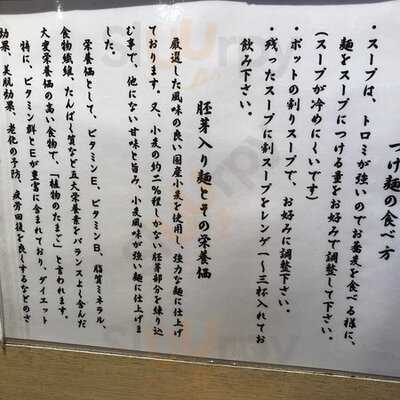 つけ麺の食べ方
・スープは、トロミが強いのでお蕎麦を食べる様に、
麺をスープにつける量をお好みで調整して下さい。
(スープが冷めにくいです)
・ポットの割りスープで、お好みに調整下さい。
・残ったスープに割スープをレンゲ1〜3杯入れてお
飲み下さい。
胚芽入り麺とその栄養価
厳選した風味の良い国産小麦を使用し、強力な麺に仕上げ
ております。又、小麦の約二%程しかない胚芽部分を練り込
む事で、他にない甘味と旨み、小麦風味が強い麺に仕上げま
した。
栄養価として、ビタミンE、ビタミンB、脂質ミネラル、
食物繊維、たんぱく質など五大栄養素をバランスよく含んだ
大変栄養価の高い食物で、「植物のたまご」と言われます。
特に、ビタミン群とEが豊富に含まれており、ダイエット
効果、美肌効果、老化の予防、疲労回復を良くするなどのさ